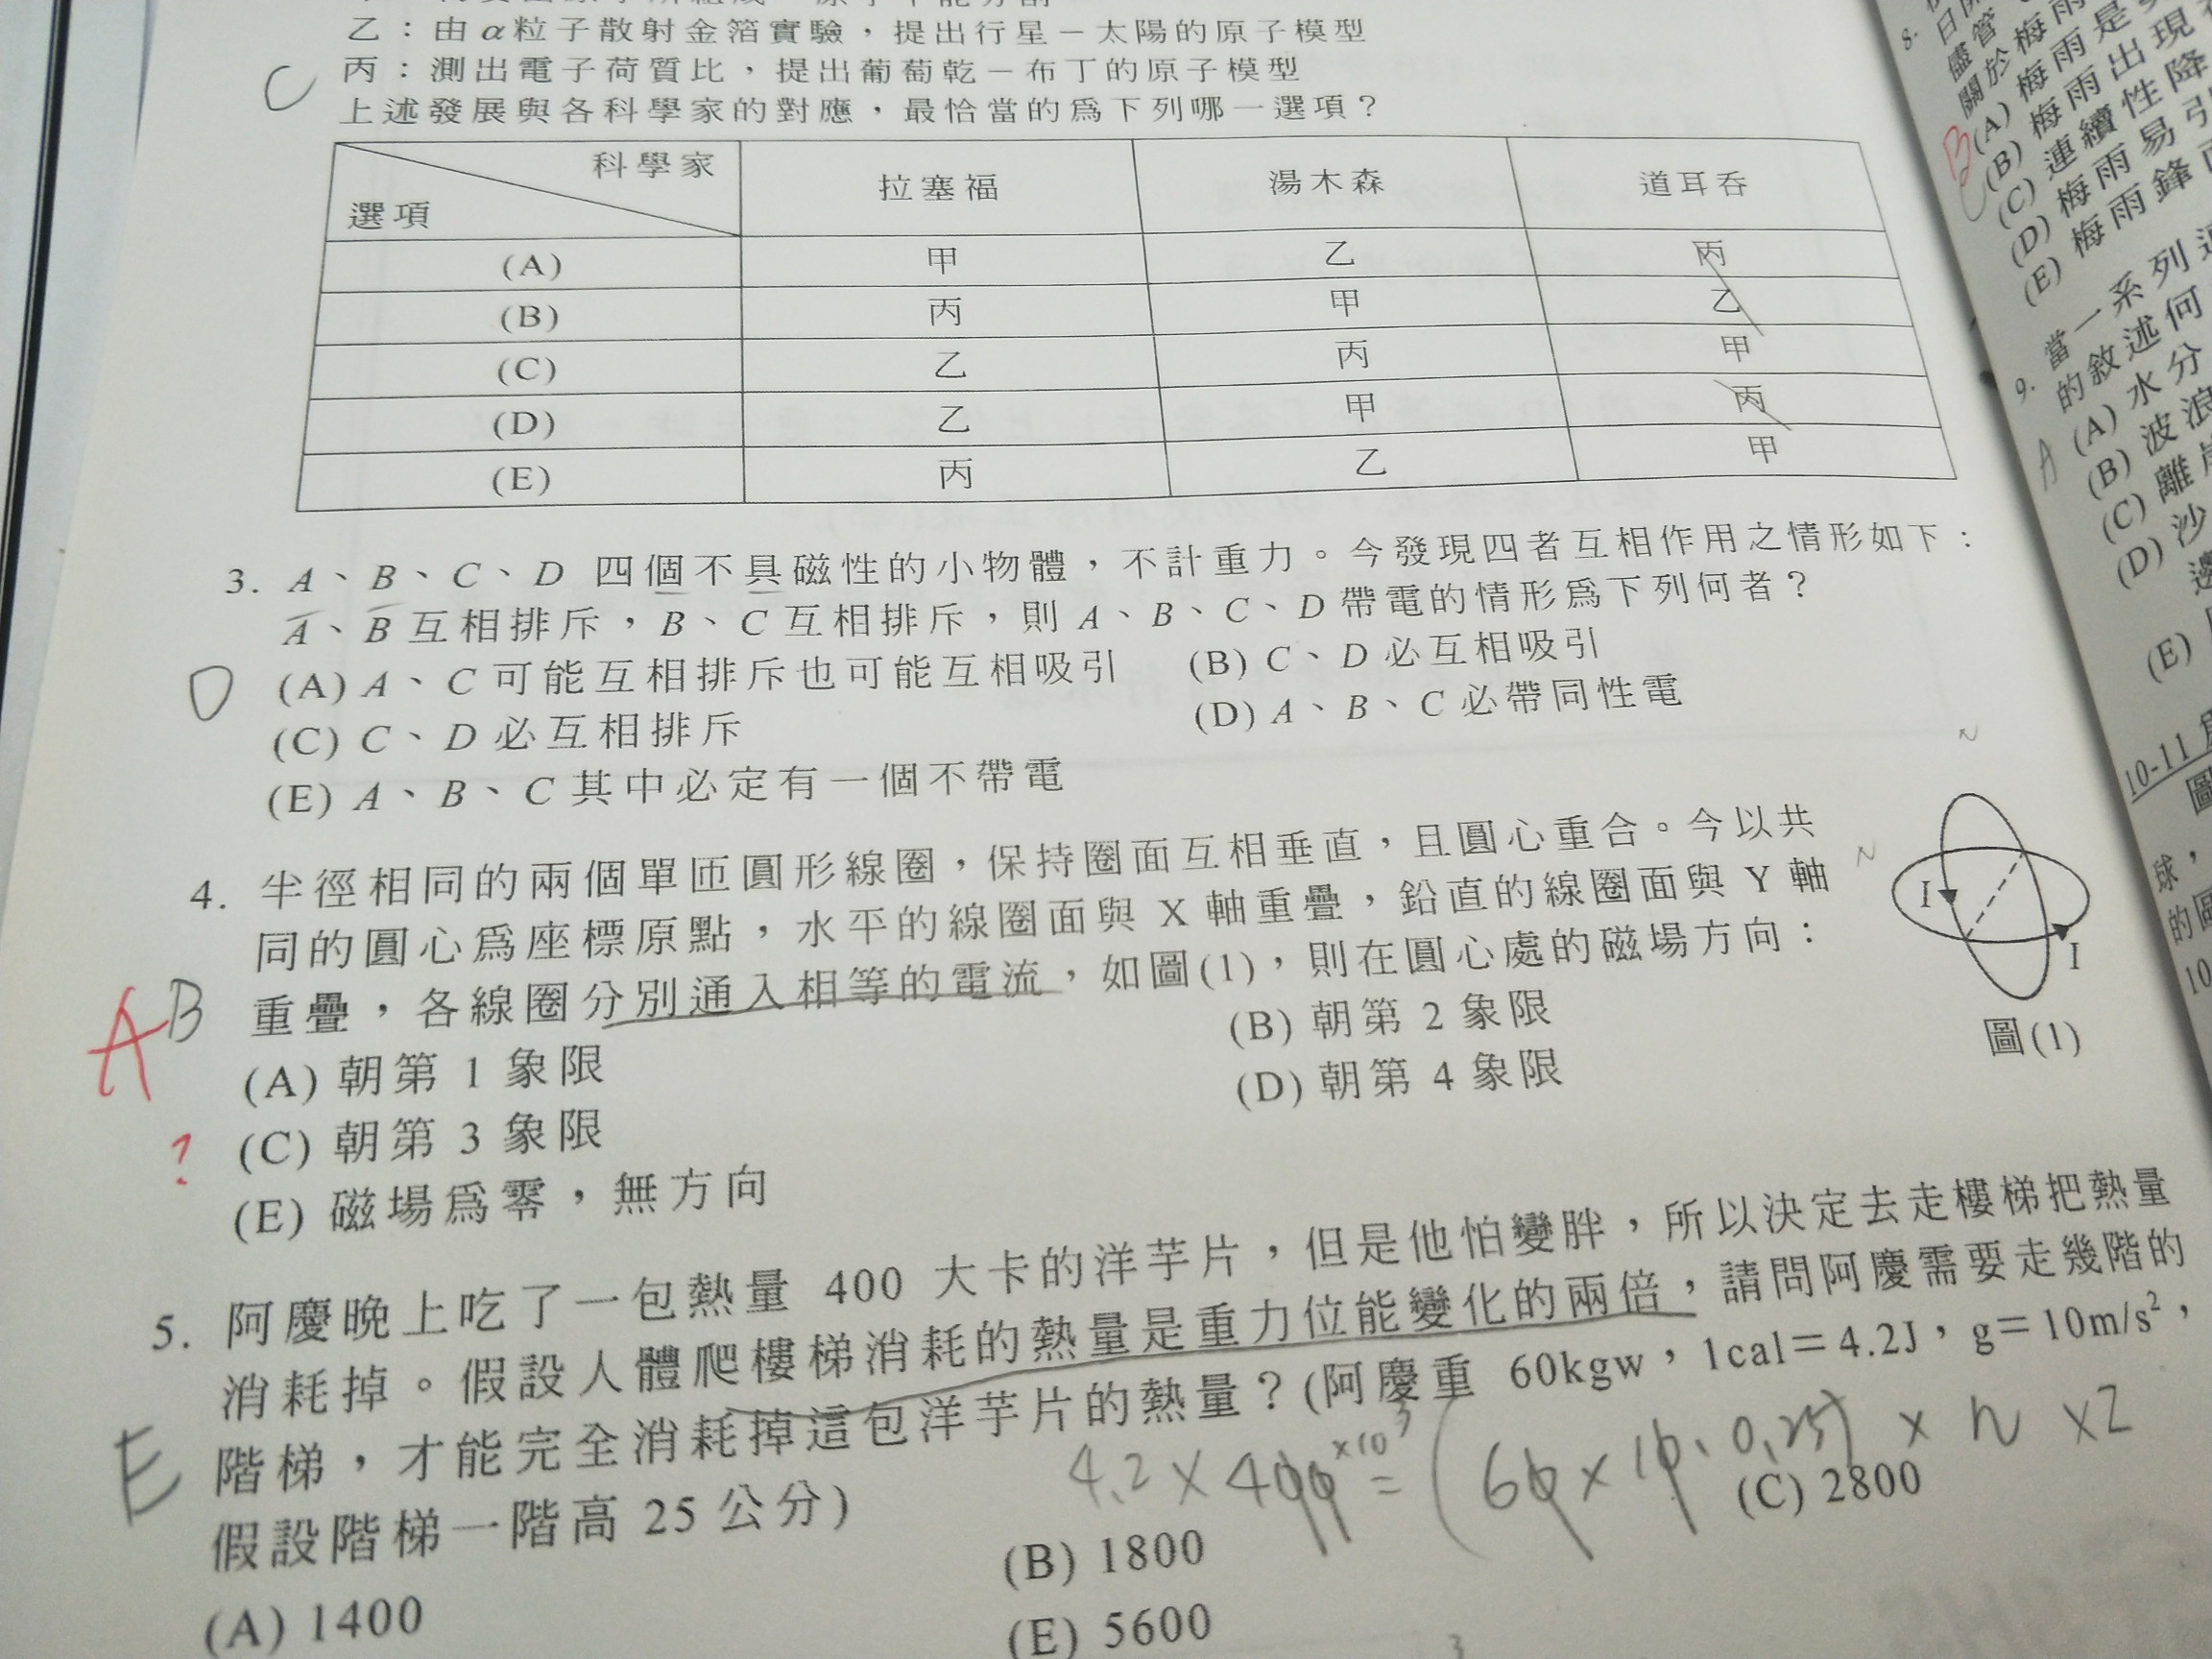 乙：由α粒子散射金箔實驗，提出行星－太陽的原子模型
丙：測出電子荷質比，提出葡萄乾－布丁的原子模型
C
上述發展與各科學家的對應，最恰當的為下列哪一選項？
科學家
選項
拉塞福
湯木森
道耳吞
(A) 甲 乙 丙
(B) 丙 甲 乙
(C) 乙 丙 甲
(D) 乙 甲 丙
(E) 丙 乙 甲
3. A、B、C、D 四個不具磁性的小物體，不計重力。今發現四者互相作用之情形如下：
A、B互相排斥，B、C互相排斥，則 A、B、C、D 帶電的情形為下列何者？
D
(A) A、C可能互相排斥也可能互相吸引 (B) C、D必互相吸引
(C) C、D必互相排斥 (D) A、B、C必帶同性電
(E) A、B、C其中必定有一個不帶電
4. 半徑相同的兩個單匝圓形線圈，保持圈面互相垂直，且圓心重合。今以共
同的圓心為座標原點，水平的線圈面與 X 軸重疊，鉛直的線圈面與 Y 軸
重疊，各線圈分別通入相等的電流，如圖(1)，則在圓心處的磁場方向：
A B
(A) 朝第 1 象限 (B) 朝第 2 象限
(C) 朝第 3 象限 (D) 朝第 4 象限
?
(E) 磁場為零，無方向
N
N
I
I
圖(1)
5. 阿慶晚上吃了一包熱量 400 大卡的洋芋片，但是他怕變胖，所以決定去走樓梯把熱量
消耗掉。假設人體爬樓梯消耗的熱量是重力位能變化的兩倍，請問阿慶需要走幾階的
階梯，才能完全消耗掉這包洋芋片的熱量？(阿慶重 60kgw，1cal＝4.2J，g＝10m/s²，
假設階梯一階高 25 公分)
E
4.2×400×10³=(60×10×0.25)×n×2
(A) 1400 (B) 1800 (C) 2800
(E) 5600
8.
儘管
關於梅雨
(A) 梅雨是
(B) 梅雨出現
(C) 連續性降
(D) 梅雨易引
(E) 梅雨鋒
B
9. 當一系列
的敘述何
(A) 水分
(B) 波浪
(C) 離岸
(D) 沙
(E)
A
10-11
圖
球，
的圓
10